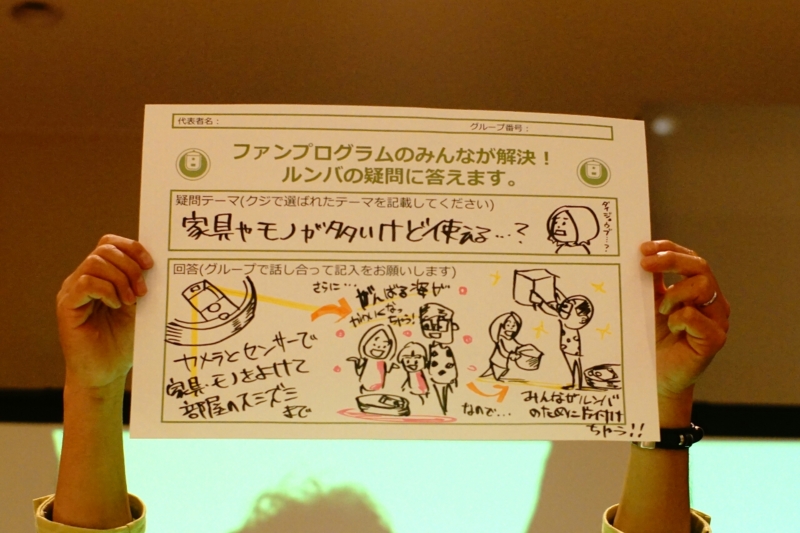 代表者名：
グループ番号：
ファンプログラムのみんなが解決！
ルンバの疑問に答えます。
疑問テーマ(クジで選ばれたテーマを記載してください)
家具やモノが多いけど使える…？
ダイジョウブ…？
回答(グループで話し合って記入をお願いします)
カメラとセンサーで
家具・モノをよけて
部屋のスミズミ
まで
さらに…
がんばる姿が
かわいくなっ
ちゃう！
なので…
みんながルンバ
のために片付け
ちゃう!!